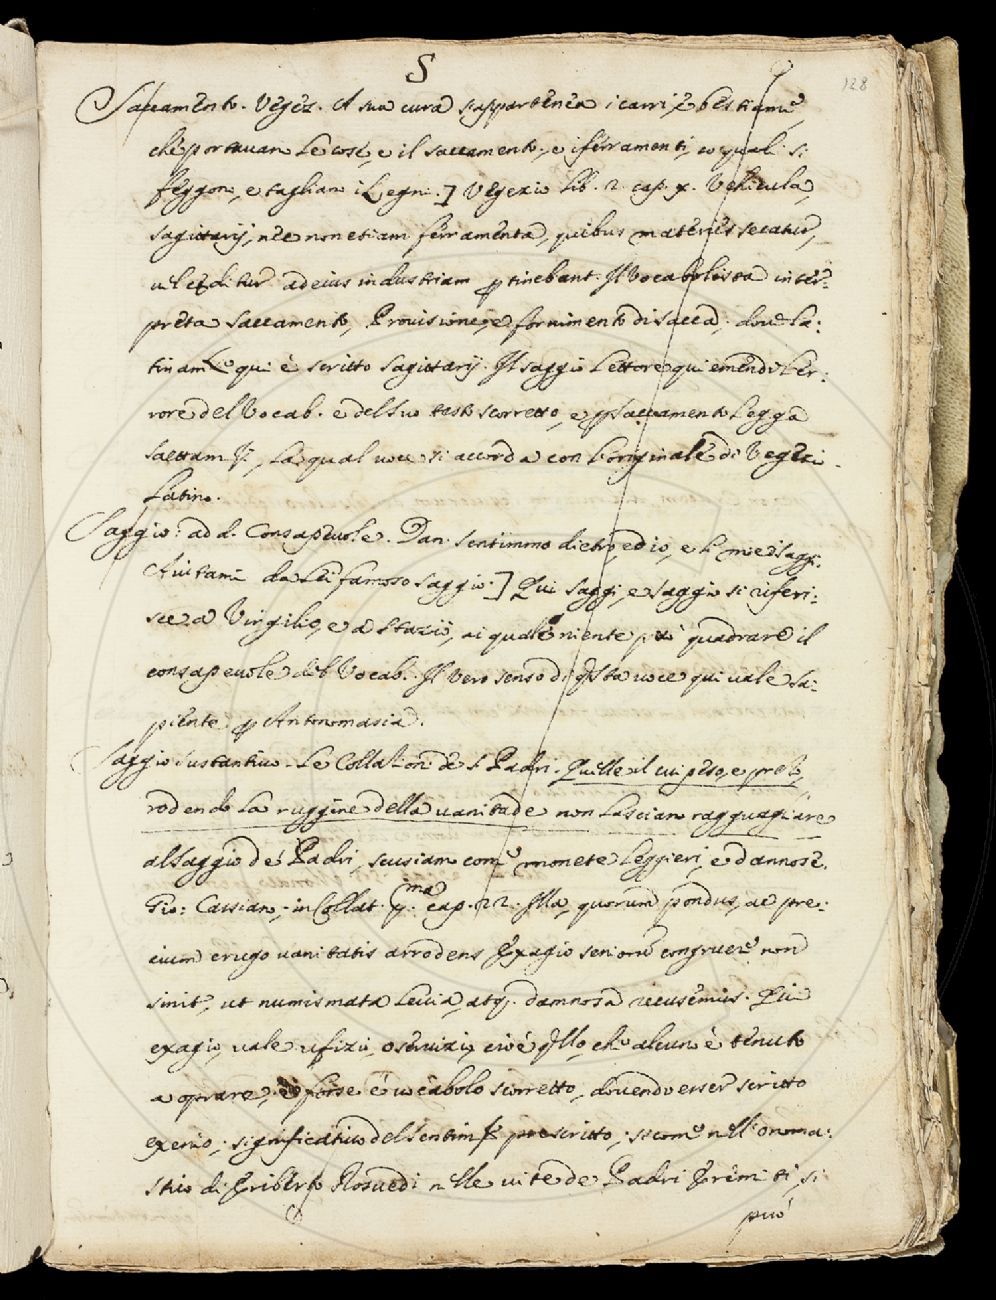 S
128
Saccamento. Vegez. A sua cura s'appartenea i carri, e bestiame,
che portavan le cose, e il saccamento, e i ferramenti, co quali si
seggon, e taglian i Legni.] Vegezio lib. 2. cap. x. Vehicula,
sagittarij, nec non etiam ferramenta, quibus materies secatur,
vel editur ad eius industriam ptinebant. Il Vocabolista inter-
preta Saccamento, Provisione, e fornimento di sacca, dove la:
tinam.e qui è scritto Sagittarij. Il saggio Lettore qui emendi l'er-
rore del Vocab. e del suo testo scorretto, e p Saccamento legga
Saettam.to, la qual voce si accorda con l'originale di Vegezio
Latino.
Saggio: ad d. Consapevole. Dan. Sentimmo dietro, ed io, e l miei Saggi.
Aiutami da lei famoso saggio.] Qui Saggi, e Saggio si riferi:
sce a Virgilio, e a Stazio, ai quali niente può quadrare il
consapevole del Vocab. Il vero senso di qsta voce qui vale Sa-
piente p Antonomasia.
Saggio sustantivo. Le Collazion de S. Padri. Quelle il cui peso, e prezo,
rodendo la ruggine della vanitade non lasciano ragguagliare
al saggio de Padri, scusiam come monete leggieri, e dannose.
Gio: Cassiano, in Collat. p.ma cap. 22. Illa, quorum pondus, ac pre-
cium erugo vanitatis arrodens exagio seniorum congruere non
sinit, ut numismata levia, atq. damnosa recusemus. Qui
exagio, vale ufizio, o servizio, cioè qllo, che alcuno è tenuto
a oprare, e forse è vocabolo scorretto, dovendo esser scritto
exenio, significativo del sentim.to prescritto, si come nell'onoma:
stico di Eriberto Rosuedi nelle vite de Padri Eremiti, si
può